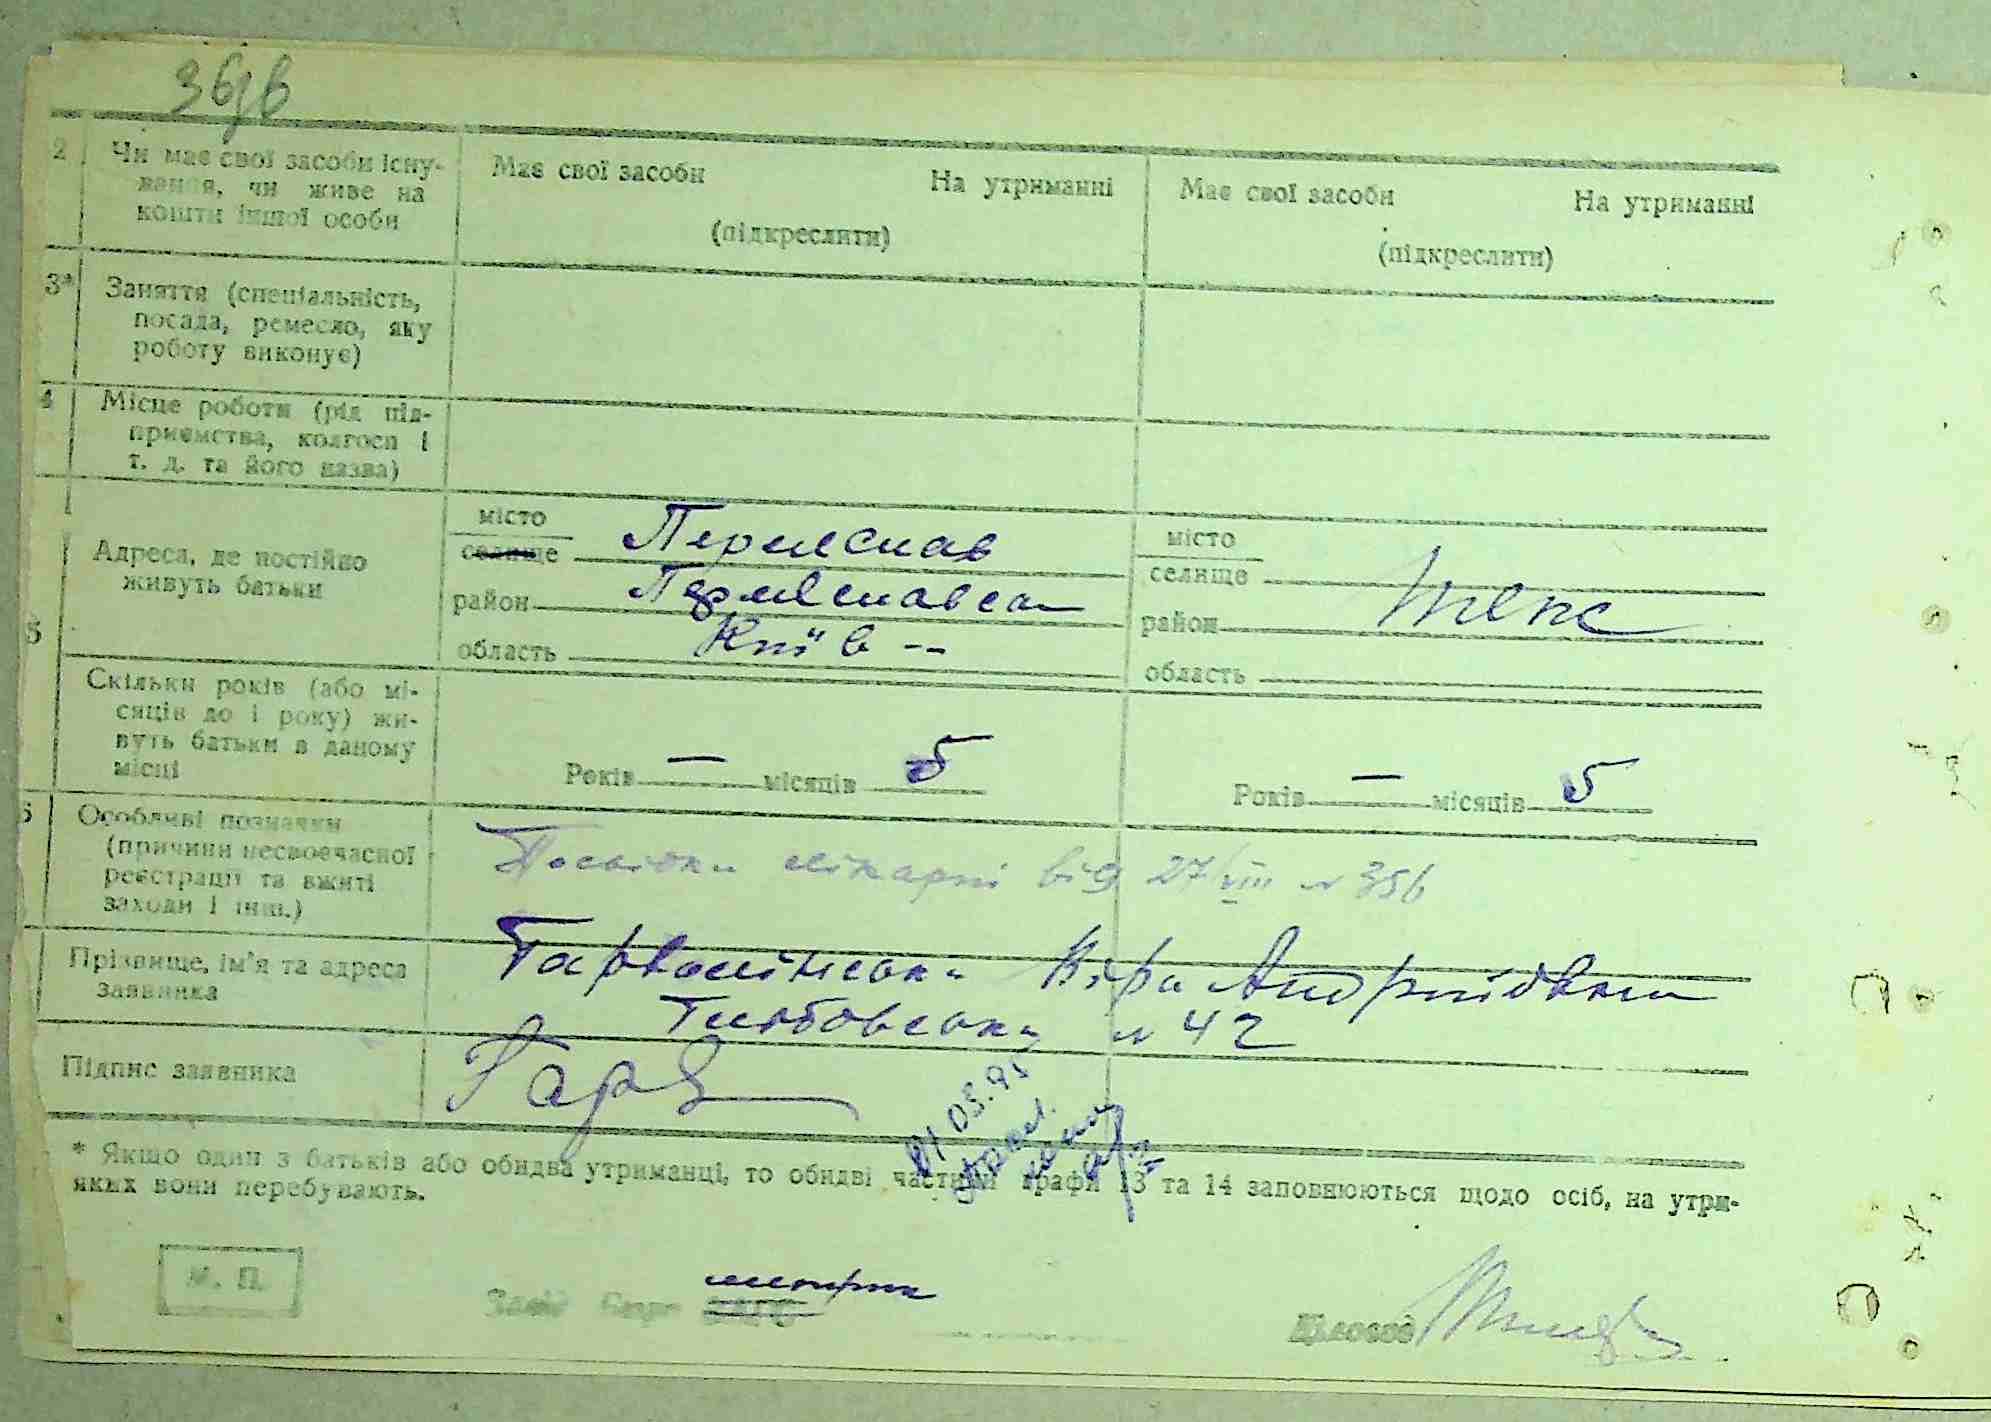 36/в
2 Чи має свої засоби існування, чи живе на кошти іншої особи
Має свої засоби На утриманні
(підкреслити)
Має свої засоби На утриманні
(підкреслити)
3* Заняття (спеціальність,
посада, ремесло, яку
роботу виконує)
4 Місце роботи (рід під-
приємства, колгосп і
т. д. та його назва)
5 Адреса, де постійно
живуть батьки
місто
селище Переяслав
район Переяславськ
область Київ --
місто
селище
район теж
область
Скільки років (або мі-
сяців до 1 року) жи-
вуть батьки в даному
місці
Років — місяців 5
Років — місяців 5
Особливі позначки
(причини несвоєчасної
реєстрації та вжиті
заходи і інш.)
лікарні від 27/VIII № 356
Прізвище, ім'я та адреса
заявника
Віра Андріївна
№ 42
Підпис заявника
Гарв
* Якщо один з батьків або обидва утриманці, то обидві частини графи 13 та 14 заповнюються щодо осіб, на утри-
яких вони перебувають.
М. П.
Завід бюро